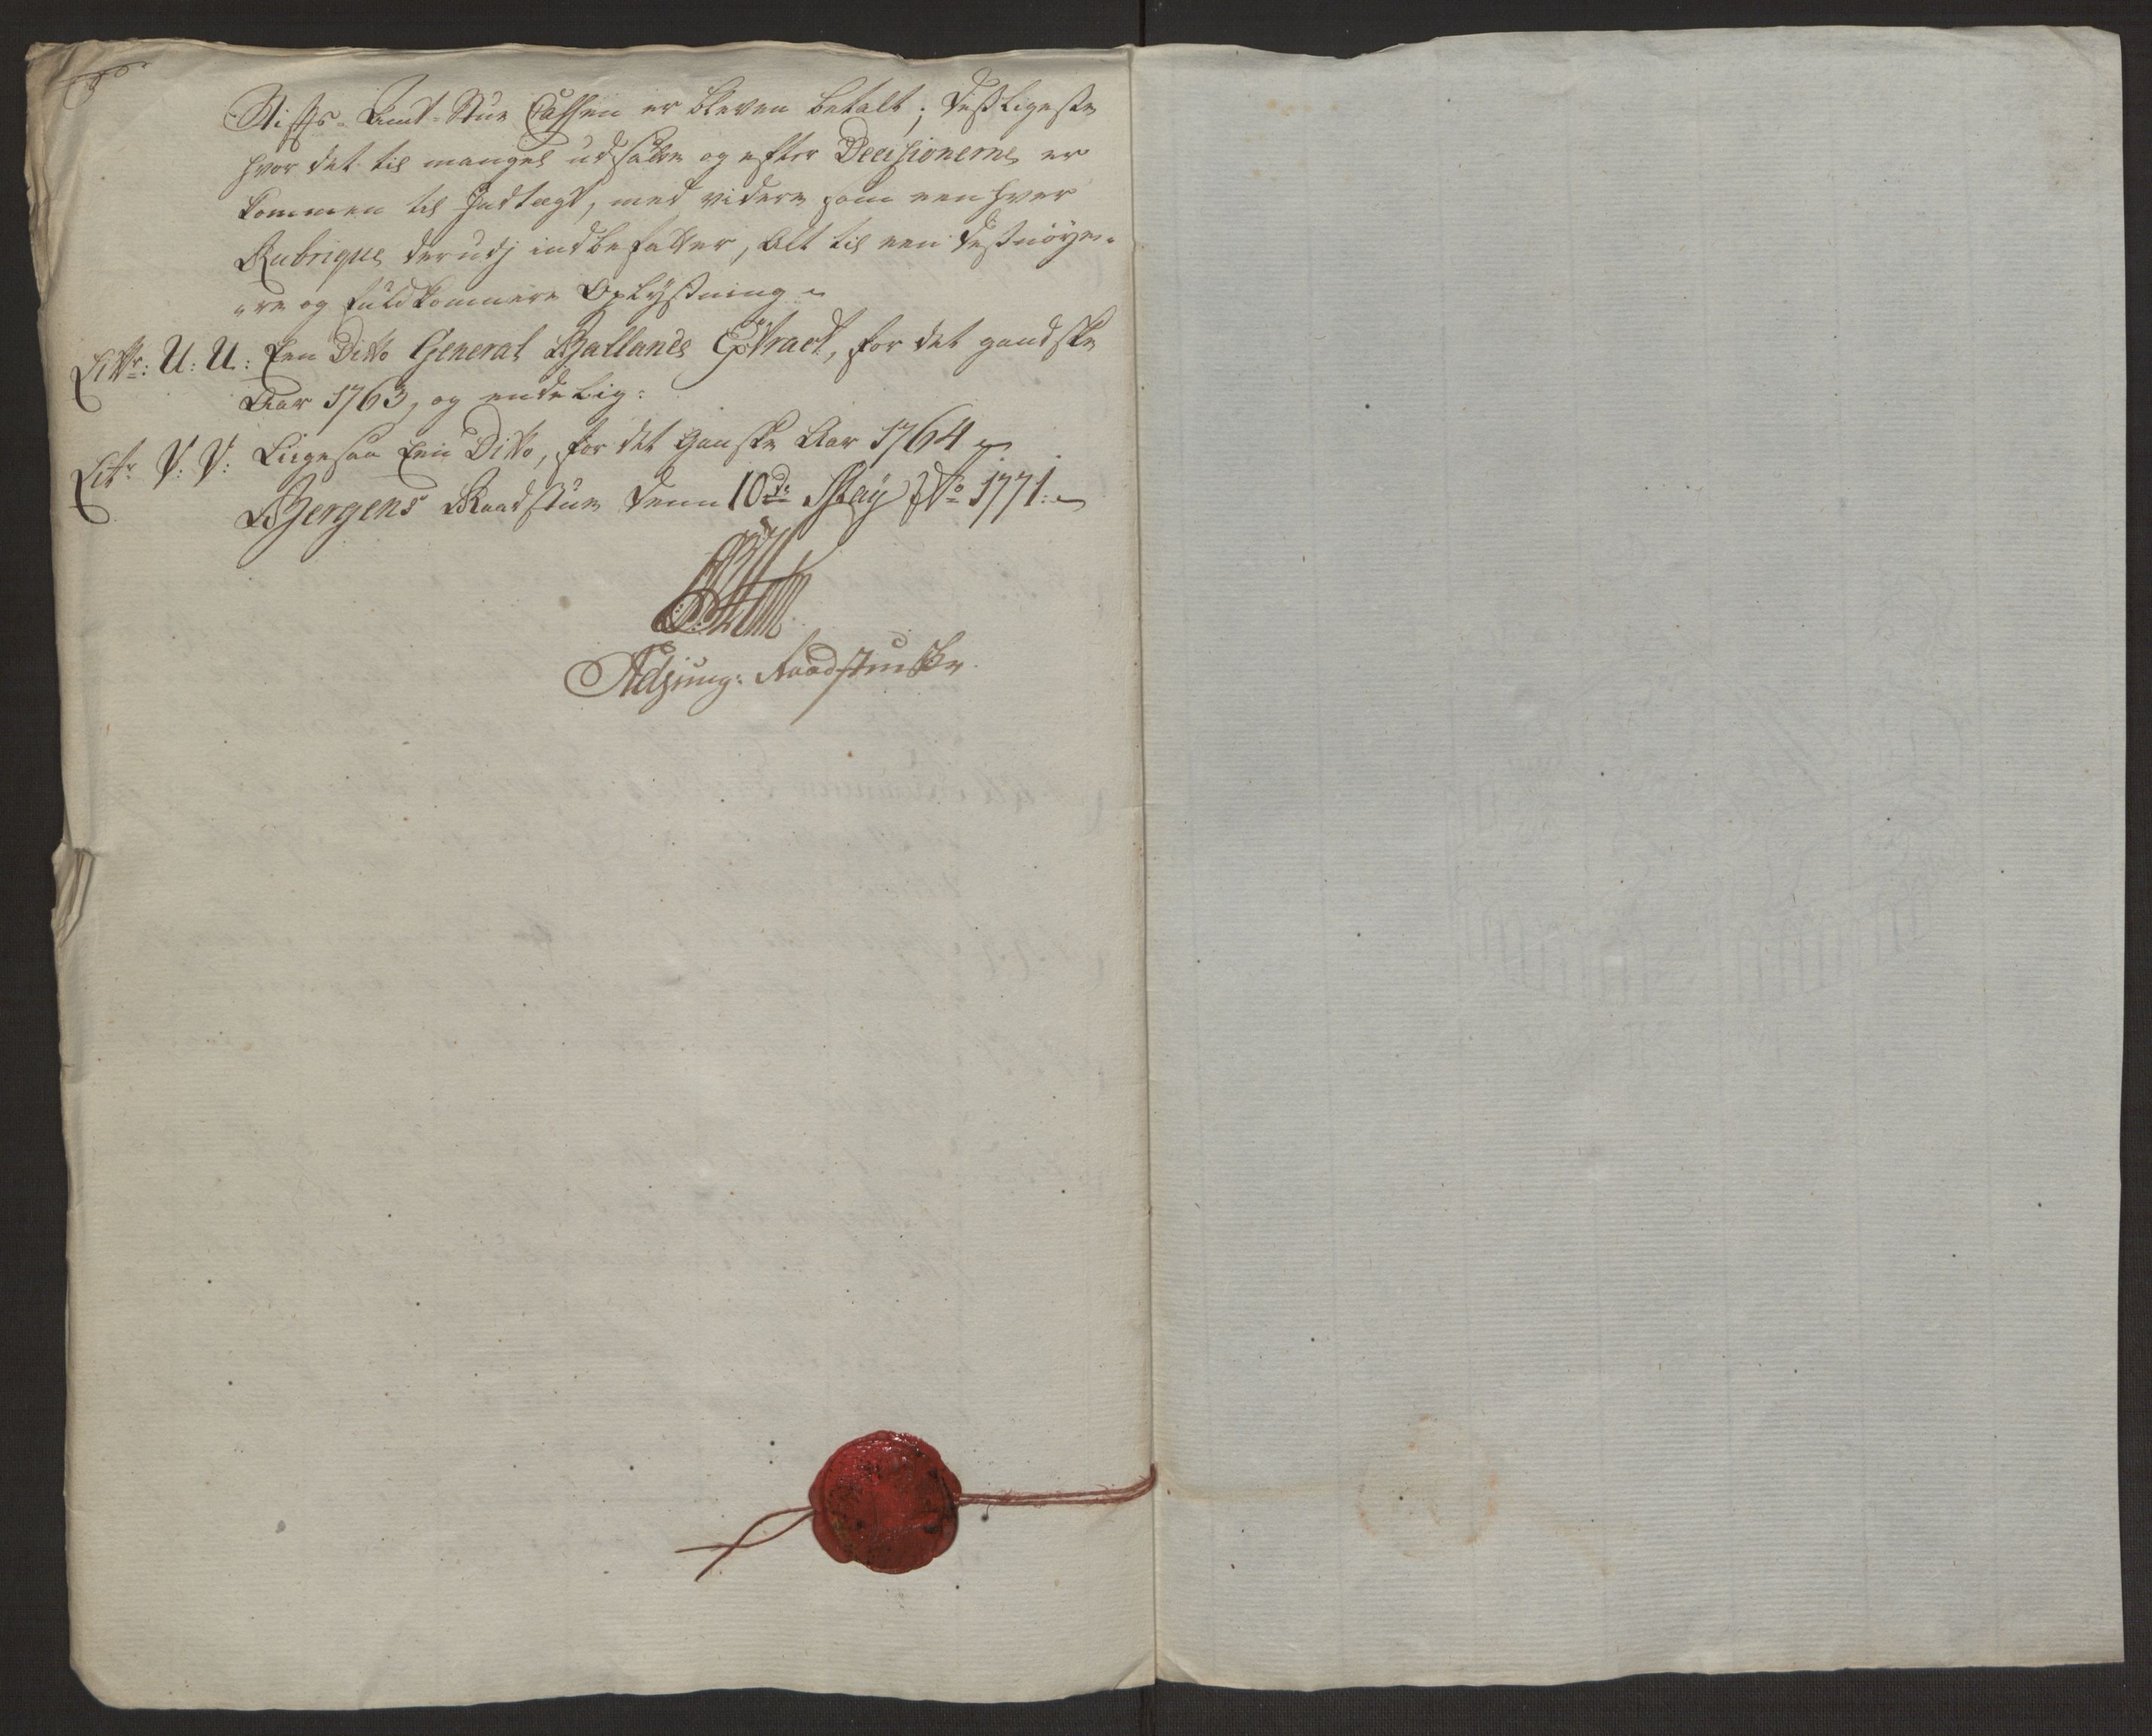 Stifts-Amt-Stue Cassen er bleven betalt; desligeste
hvor det til mangel udfalder og efter Decisionerne er
kommen til Indtægt, med videre som een hver
Rubrique derudj indbefatter, Alt til een desnöye-
"re og fuldkomnere Oplysning
Littr: U: U: Een Ditto General Ballance Extract, for det gandske
Aar 1763, og endelig:
Litr V: V: Liigesaa Een Ditto, for det Ganske Aar 1764
Bergens Raadstue denn 10de May Ao 1771.
Adjung: Raadstuesk